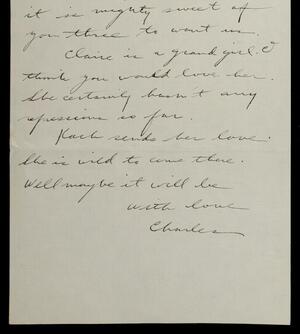 it is mighty sweet of
you three to want us.
Claire is a grand girl. I
think you would love her.
She certainly hasn't any
repressions so far.
sends her love.
She is wild to come there.
Well maybe it will be
With love
Charles